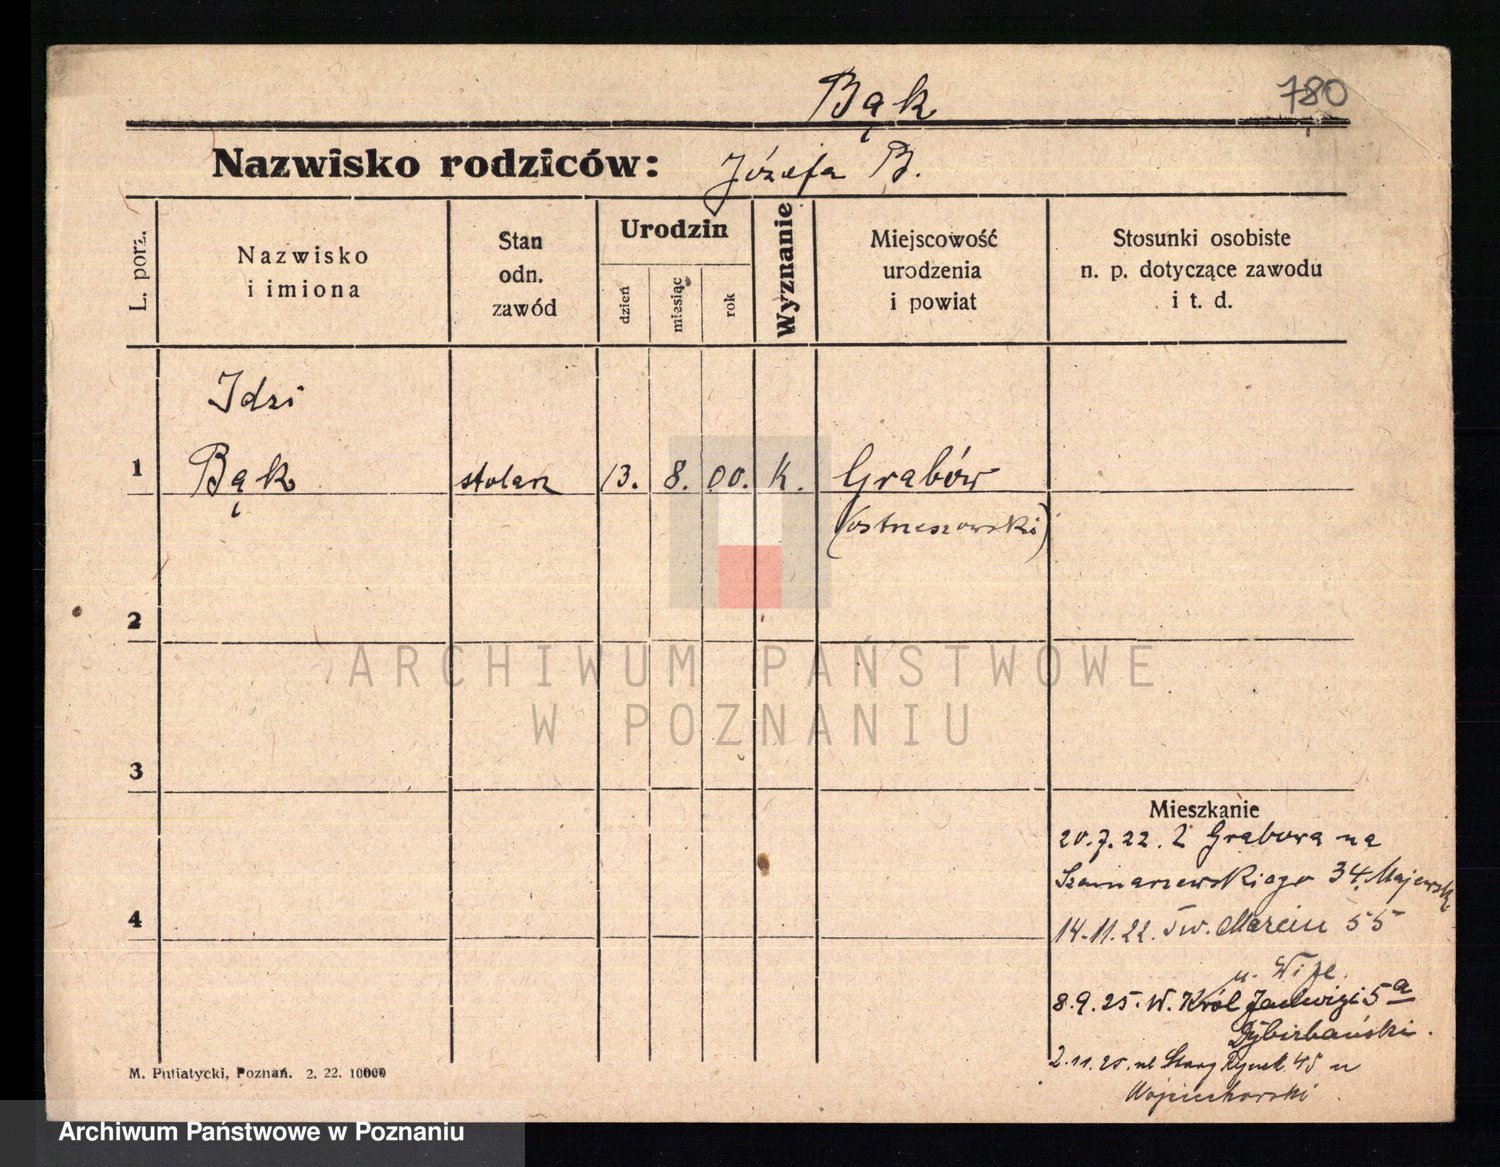 Bąk
780
Nazwisko rodziców: Józefa B.
L. porz.
Nazwisko
i imiona
Stan
odn.
zawód
Urodzin
dzień
miesiąc
rok
Wyznanie
Miejscowość
urodzenia
i powiat
Stosunki osobiste
n. p. dotyczące zawodu
i t. d.
Idzi
1 Bąk stolarz 13. 8. 00. K. Grabów
(ostrzeszowski)
2
ARCHIWUM PAŃSTWOWE
W POZNANIU
3
Mieszkanie
20.7.22. Z Grabowa na
Szamarzewskiego 34. Majewski
4
14.11.22. Św. Marcin 55
u.
8.9.25. W. Król Jadwigi 5a
2.11.25. na Stary Rynek 45 u
Wojciechowski
M. Putiatycki, Poznań. 2. 22. 10000
Archiwum Państwowe w Poznaniu